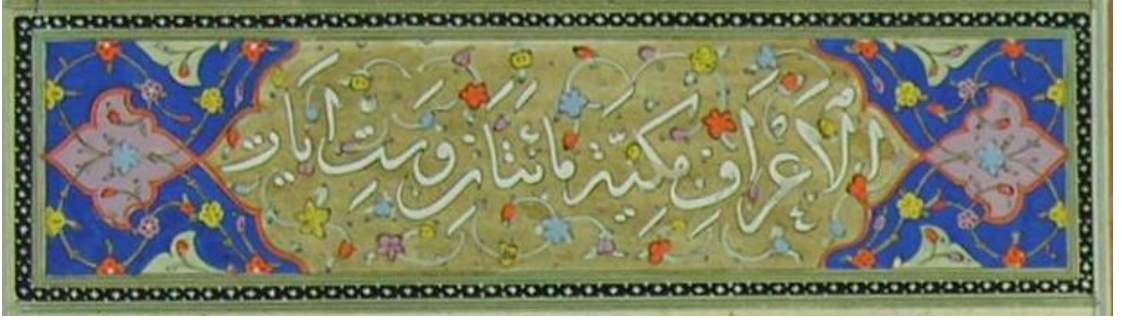 الاعراف مكيّة مائتان وست ايات